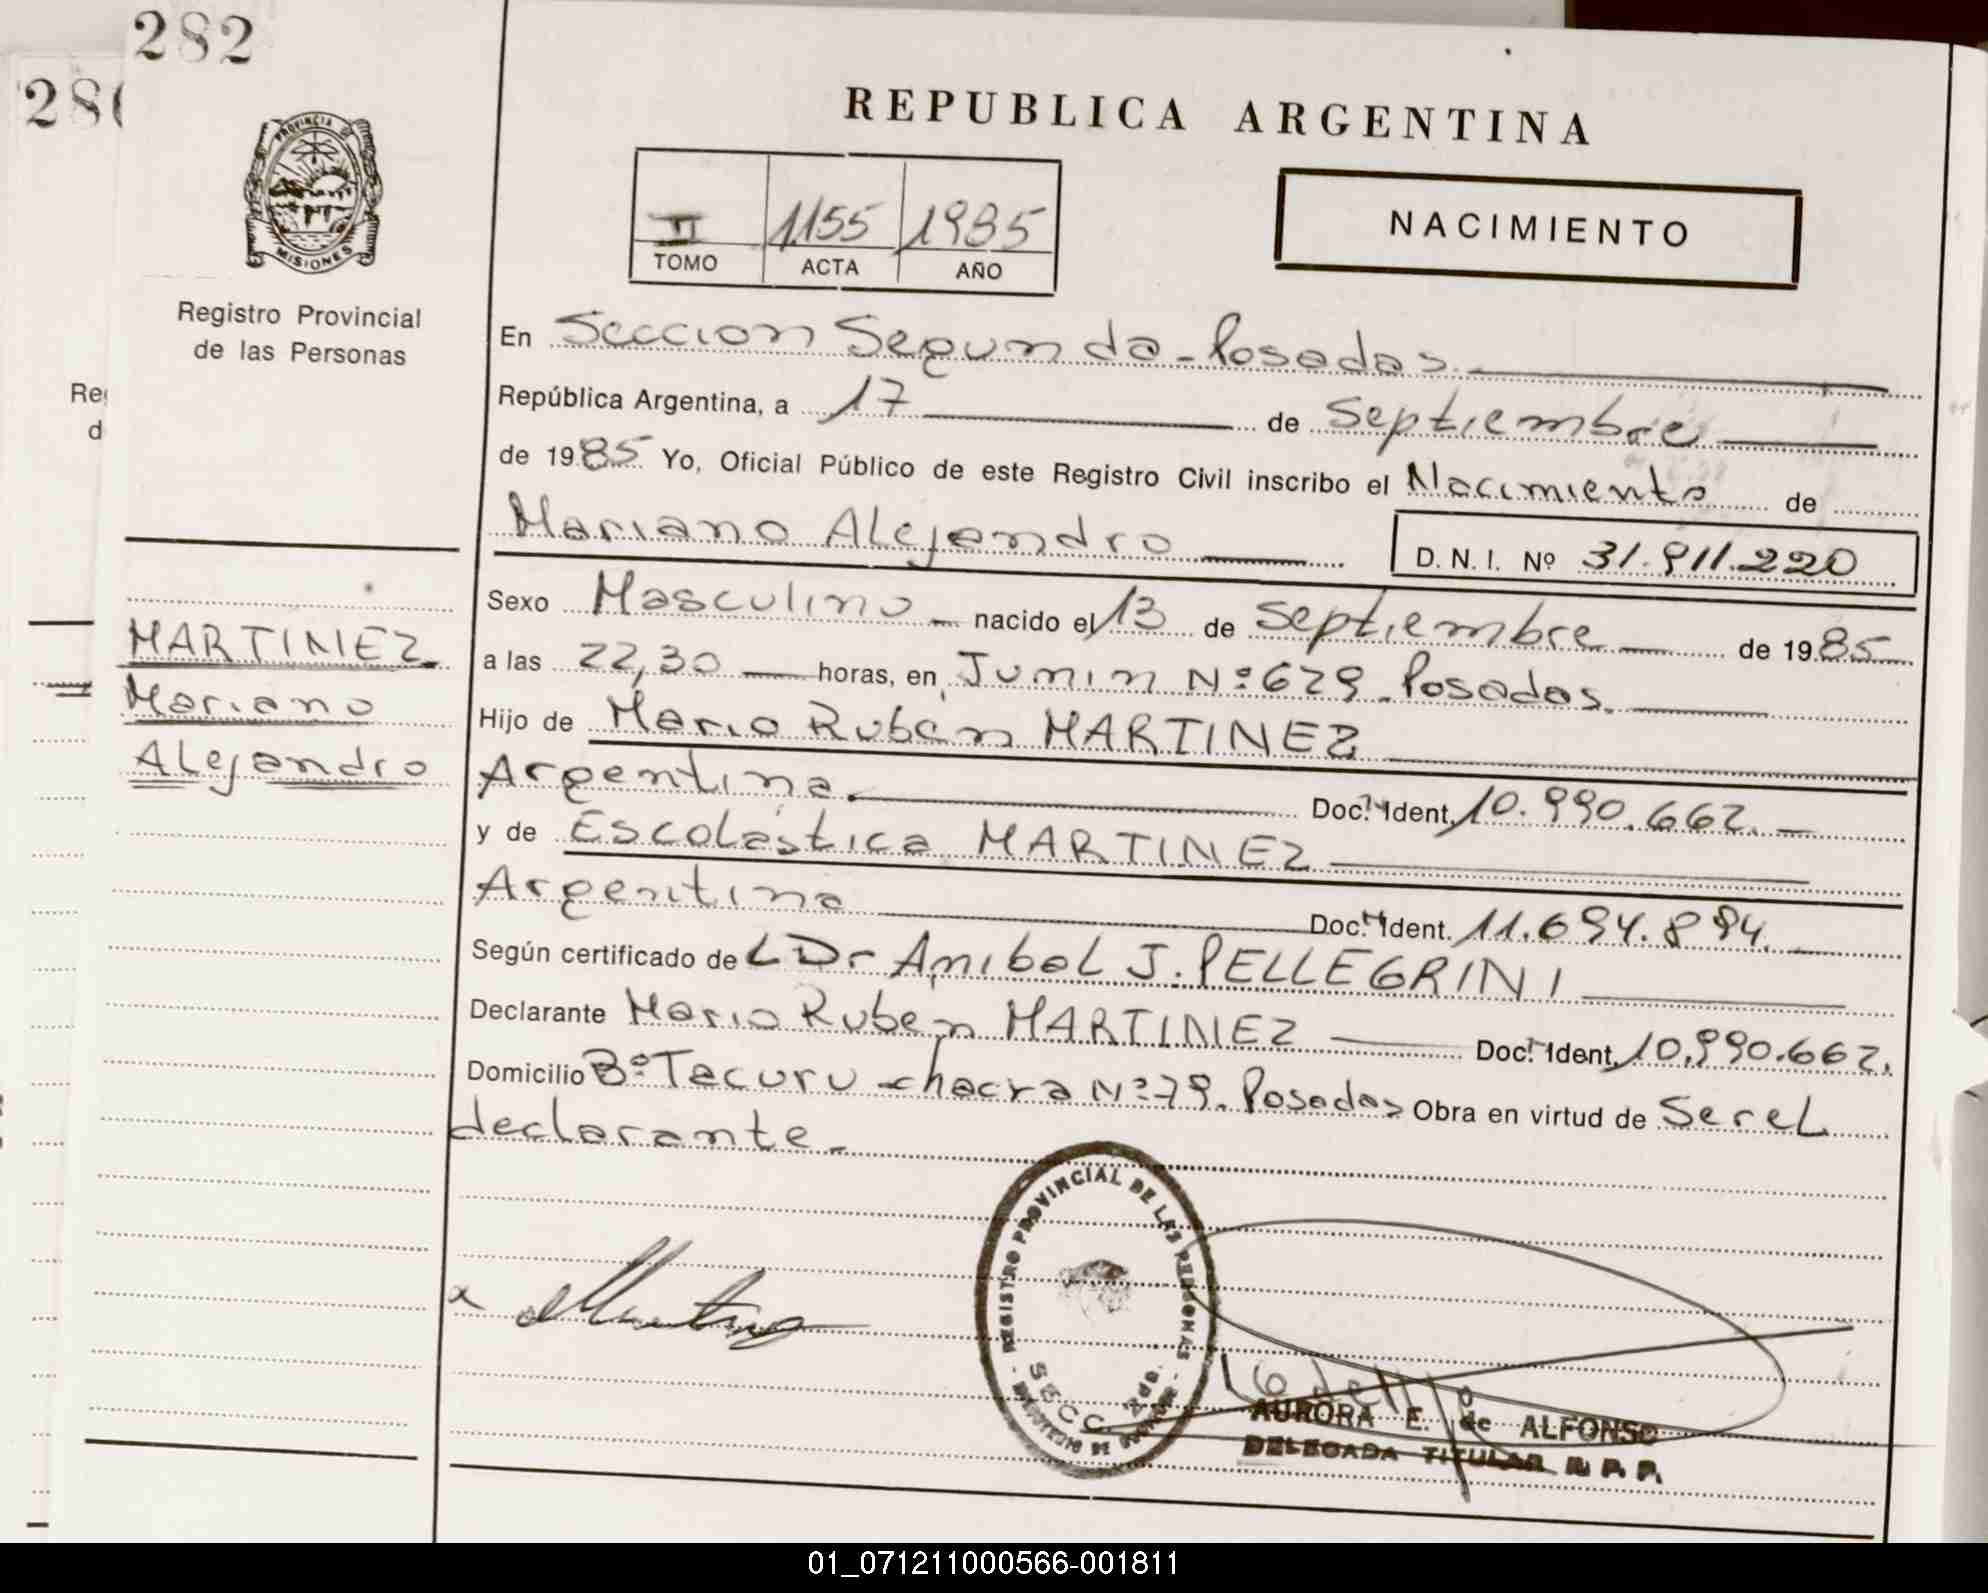 282
28
REPUBLICA ARGENTINA
PROVINCIA DE
MISIONES
II 1155 1985
TOMO ACTA AÑO
NACIMIENTO
Registro Provincial
de las Personas
Reg
d
En Seccion Segunda-Posadas.
República Argentina, a 17 de Septiembre
de 1985 Yo, Oficial Público de este Registro Civil inscribo el Nacimiento de
Mariano Alejandro D. N. I. Nº 31.911.220
Sexo Masculino nacido el 13 de Septiembre de 1985
a las 22,30 horas, en Junin Nº 679. Posadas.
Hijo de Mario Rubén MARTINEZ
Argentina. Doc. Ident. 10.990.662.
y de Escolástica MARTINEZ
Argentina Doc. Ident. 11.694.894.
Según certificado de L Dr Anibal J. PELLEGRINI
Declarante Mario Ruben MARTINEZ Doc. Ident. 10.990.662.
Domicilio Bº Tacuru - chacra Nº 79. Posadas Obra en virtud de Ser el
declarante.
MARTINEZ
Mariano
Alejandro
REGISTRO PROVINCIAL DE LAS PERSONAS
SECC. 2da.
MINISTERIO DE GOBIERNO
AURORA E. de ALFONSO
DELEGADA TITULAR R. P. P.
01_071211000566-001811